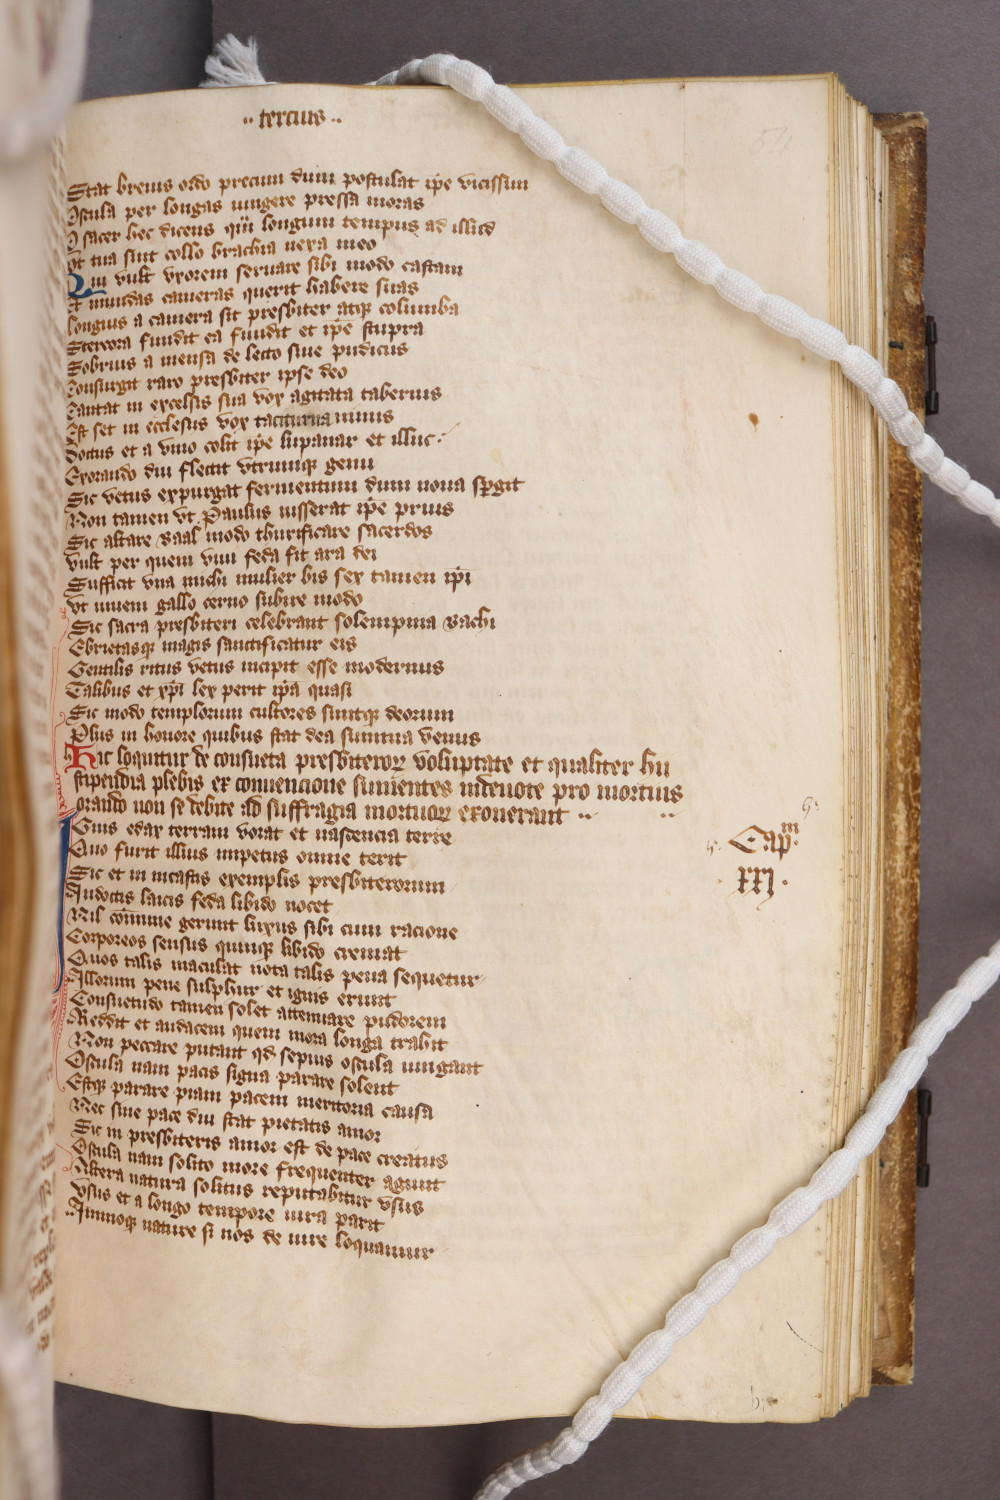 ·· tercius ··
54
Stat breuis ordo precum dum postulat ip̄e vicissim
Oscula per longas iungere pressa moras
O sacer hec dicens qm̄ longum tempus ad illud
Vt tua sint collo brachia nexa meo
Qui vult vxorem seruare sibi modo castam
Et mundas cameras querit habere suas
Longius a camera sit presbiter atqꝫ columba
Stercora fundit ea fundit et ip̄e stupra
Sobrius a mensa de lecto siue pudicus
Consurgit raro presbiter ipse deo
Cantat in excelsis sua vox agitata tabernis
Est set in ecclesiis vox taciturna nimis
Doctus et a vino colit ip̄e lupanar et illuc
Exorando diu flectit vtrumqꝫ genu
Sic vetus expurgat fermentum dum noua spergit
Non tamen vt Paulus iusserat ip̄e prius
Sic altare Baal modo thurificare sacerdos
Vult per quem vim feda fit ara dei
Sufficit vna michi mulier bis sex tamen ip̄i
Vt iuuem gallo cerno subire modo
Sic sacra presbiteri celebrant solempnia Bachi
Ebrietasqꝫ magis sanctificatur eis
Gentilis ritus vetus incipit esse modernus
Talibus et xp̄i lex perit ip̄a quasi
Sic modo templorum cultores suntqꝫ deorum
Plus in honore quibus stat dea summa venus
Hic loquitur de consueta presbiteroꝝ voluptate et qualiter hii
stipendia plebis ex conuencione sumentes indeuote pro mortuis
orando non se debite ad suffragia mortuoꝝ exonerant ··
Cap^m
xxj·
Ignis edax terram vorat et nascencia terre
Quo furit illius impetus omne terit
Sic et in incastis exemplis presbiterorum
Indoctis laicis feda libido nocet
Nil com̄une gerunt luxus sibi cum racione
Corporeos sensus quinqꝫ libido cremat
Quos talis maculat nota talis pena sequetur
Illorum pene sulphur et ignis erunt
Consuetudo tamen solet attenuare pudorem
Reddit et audacem quem mora longa trahit
Non peccare putant qd̄ sepius oscula iungant
Oscula nam pacis signa parare solent
Estqꝫ parare piam pacem meritoria causa
Nec sine pace diu stat pietatis amor
Sic in presbiteris amor est de pace creatus
Oscula nam solito more frequenter agunt
Altera natura solitus reputabitur vsus
Vsus et a longo tempore iura parit
Immoqꝫ nature si nos de iure loquamur